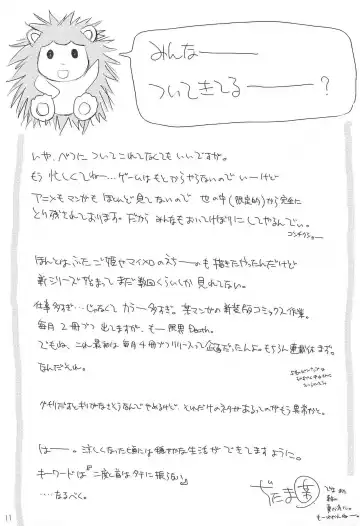 みんなー
ついてきてるー?
いや、べつに ついてこれてなくてもいいですが。
もう 忙しくてねー…ゲームはもとからやらないので いーけど
アニメもマンガも ほとんど見てないので 世の中(限定的)から完全に
とり残されております。だから みんなもおいてけぼりにしてやるんでぃ。
コンチクショー。
ほんとは ふたご姫やマイメロのえちーのも描きたかったんだけど
新シリーズ始まって まだ数回くらいしか 見れてない。
仕事多すぎ…じゃなくて カラー多すぎ。某マンガの新装版コミックス作業。
毎月2冊ずつ 出てますが、もー限界Death。
でもね、これ最初は 毎月4冊ずつリリースって企画だったんよ。もちろん連載休まず。
なんだそれ。
はー。涼しくなった頃には 穏やかな生活が できてますように。
キーワードは『二度と首はタテに振らない』
……なるべく。
11